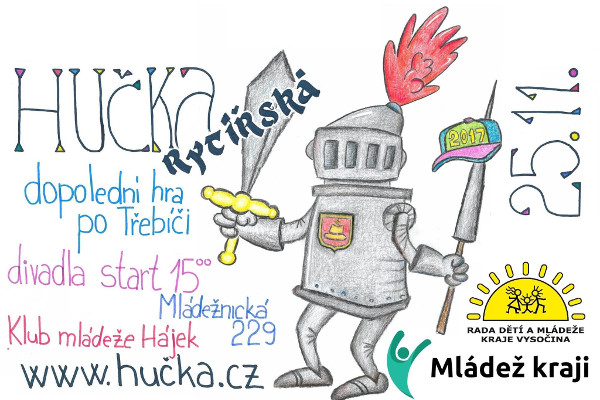 HUČKA
Rytířská
dopolední hra
po Třebíči
divadla start 15ººº
Mládežnická
229
Klub mládeže Hájek
www.hučka.cz
2017
25.11.
RADA DĚTÍ A MLÁDEŽE
KRAJE VYSOČINA
Mládež kraji